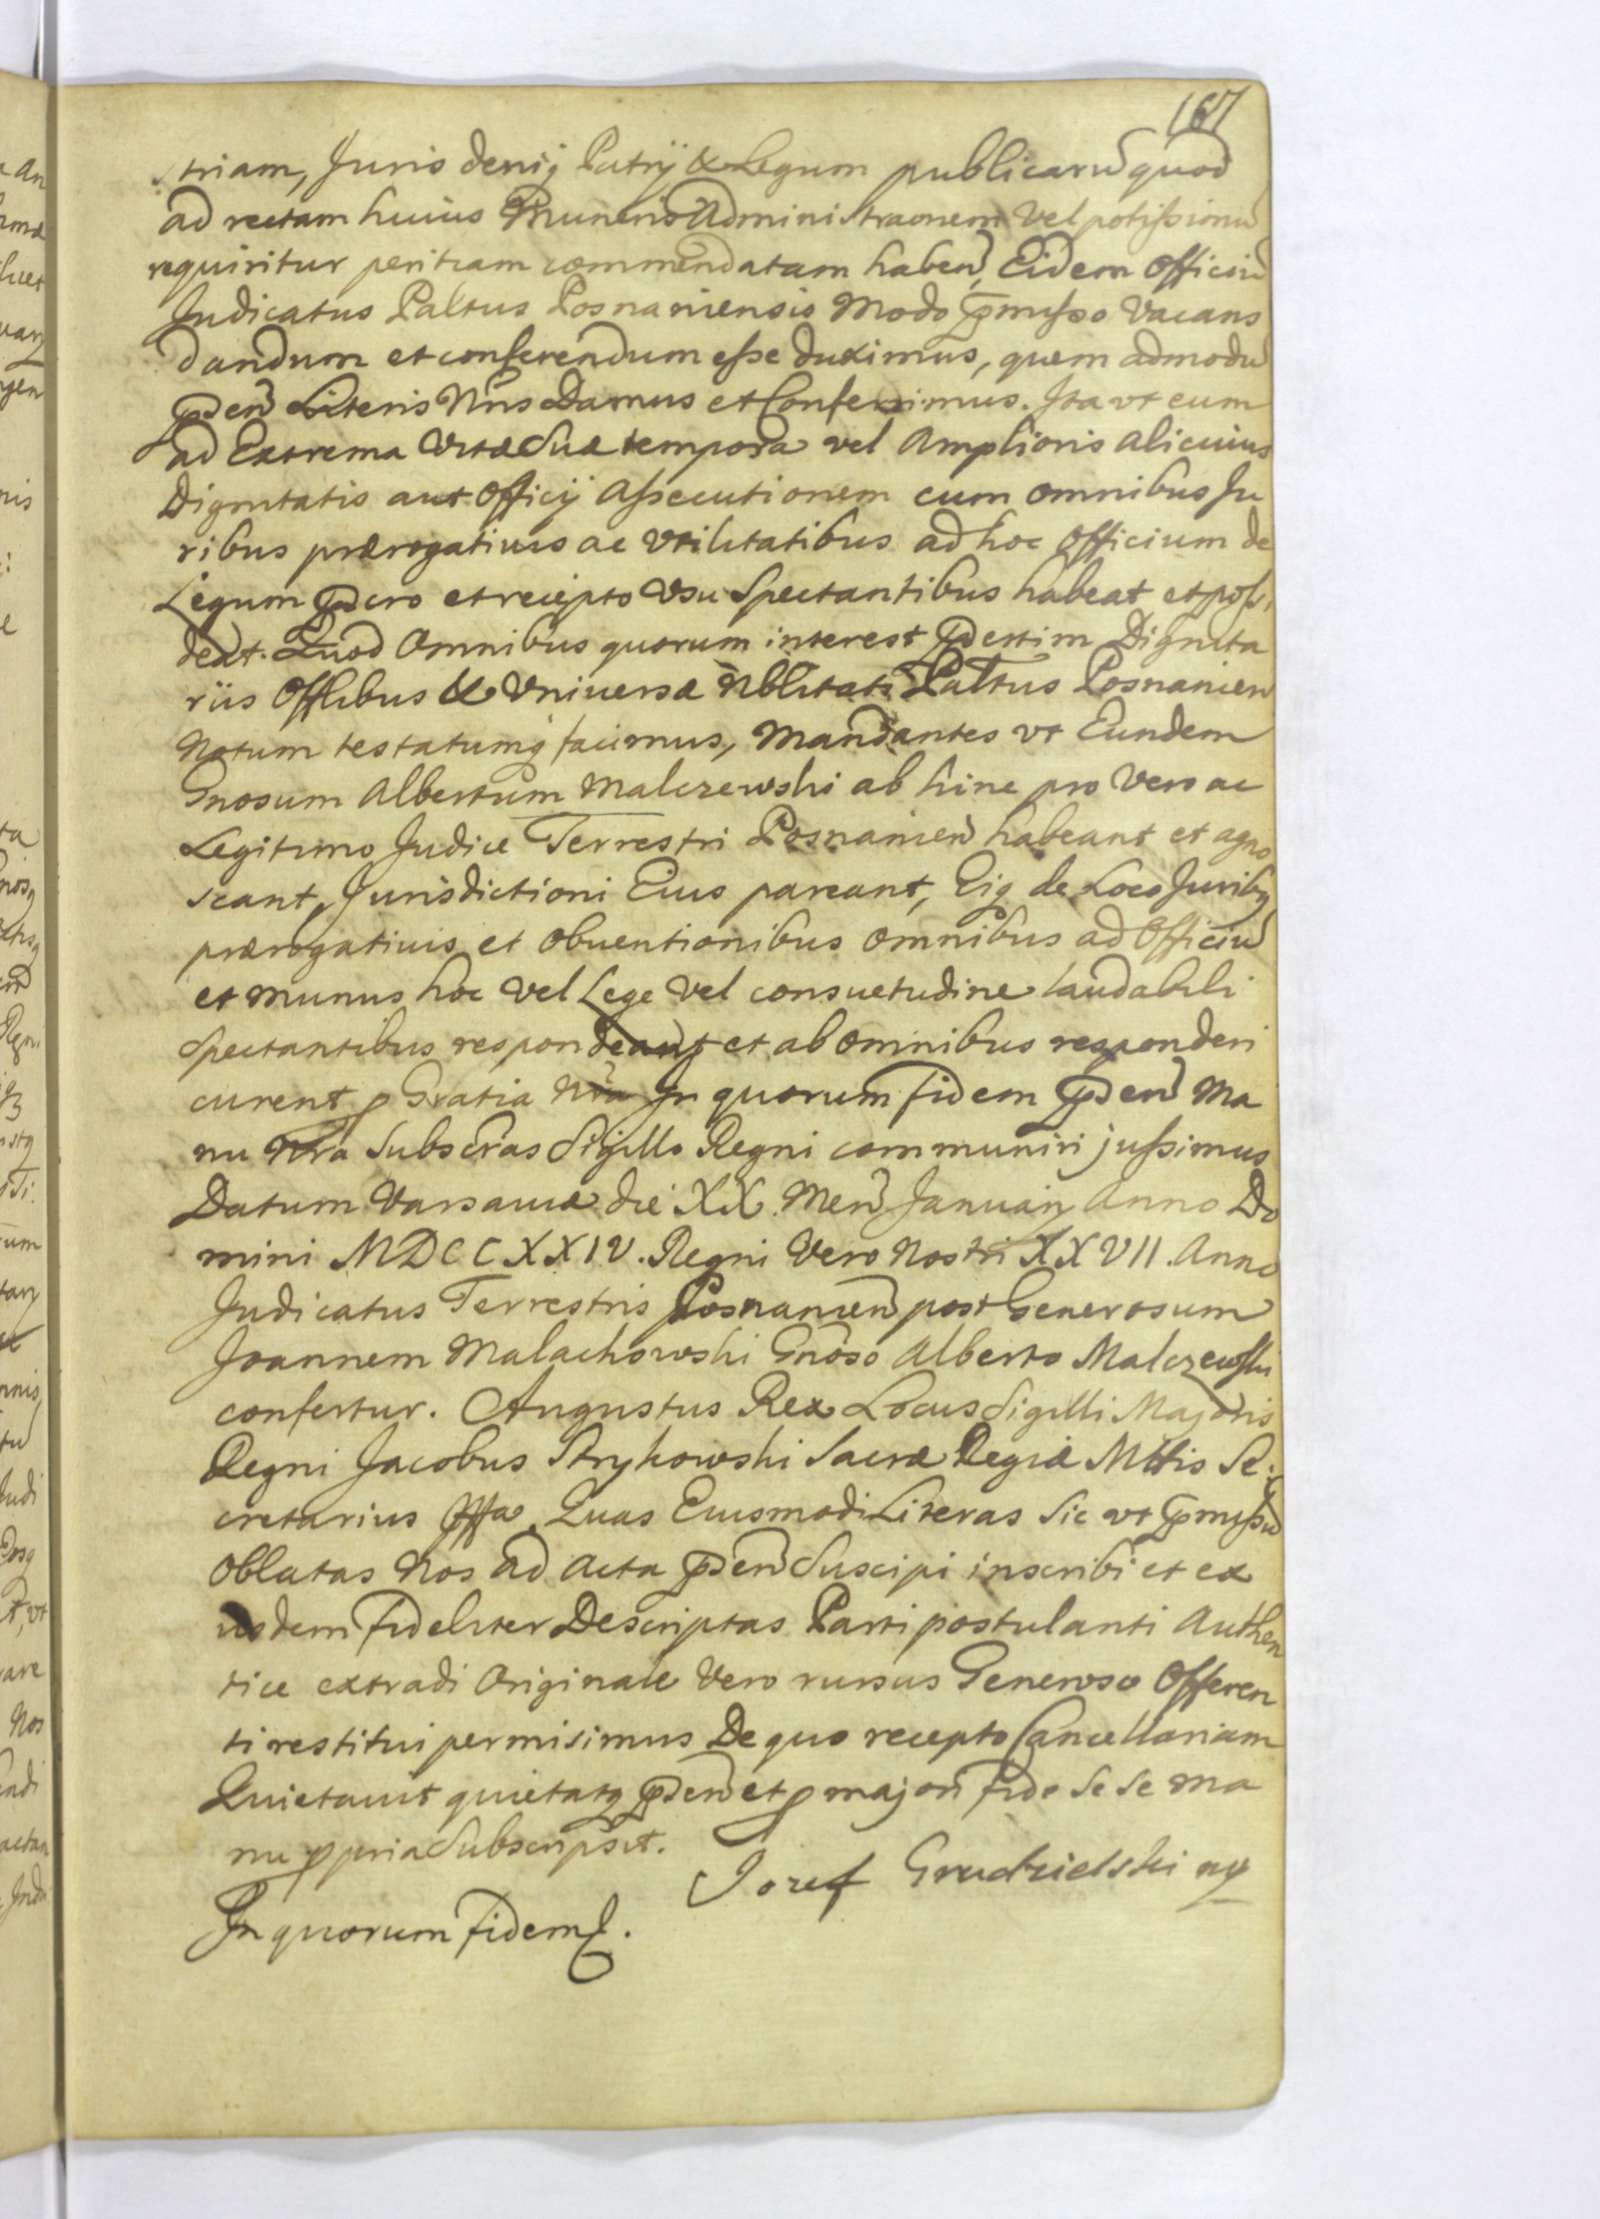 167
striam, Juris deniq Patrij & Legum publicarū quod
ad rectam huius Muneris Administraonem vel potissimū
requiritur peritiam commendatam haben̄, Eidem Officiū
Judicatus Paltus Posnaniensis modo p̄misso vacans
dandum et conferendum esse duximus, quem admodū
p̄sen̄ Literis Nris Damus et Conferimus. Ita vt eum
ad Extrema Vitæ Suæ tempora vel Amplioris alicuius
Dignitatis aut Officij Assecutionem cum omnibus Ju
ribus prærogatiuis ac vtilitatibus ad hoc Officium de
Legum p̄scro et recepto vsu Spectantibus habeat et possi
deat. Quod Omnibus quorum interest p̄sertim Dignita
riis Offlibus & Vniuersæ Nblitati Paltus Posnanien
Notum testatumq facimus, Mandantes vt Eundem
Gnosum Albertum Malczewski ab hinc pro Vero ac
Legitimo Judice Terrestri Posnanien̄ habeant et agno
scant, Jurisdictioni Eius pareant, Eiq de Loco Juribq
prærogatiuis et obuentionibus omnibus ad Officiū
et munus hoc vel Lege vel consuetudine laudabili
Spectantibus respondeant et ab omnibus responderi
curent p Gratia Nra In quorum fidem p̄sen̄ Ma
nu Nra Subscras Sigillo Regni communiri jussimus
Datum Varsauiæ die XX Men̄ Januarij Anno Do
mini MDCCXXIV. Regni Vero Nostri XXVII. Anno
Judicatus Terrestris Posnanien̄ post Generosum
Joannem Malachowski Gnoso Alberto Malczewski
confertur. Augustus Rex Locus Sigilli Majoris
Regni Jacobus Strykowski Sacræ Regiæ Mttis Se
cretarius Quas Eiusmodi Literas Sic vt p̄missū
Oblatas Nos ad Acta p̄sen̄ Suscipi inscribi et ex
iisdem fideliter Descriptas Parti postulanti Authen
tice extradi Originale Vero rursus Generoso Offeren
ti restitui permisimus De quo recepto Cancellariam
Quietauit quietatq p̄sen̄ et p majori fide Se Se ma
nu ppria Subscripsit.
Jozef Grudzielski mp
In quorum fidem